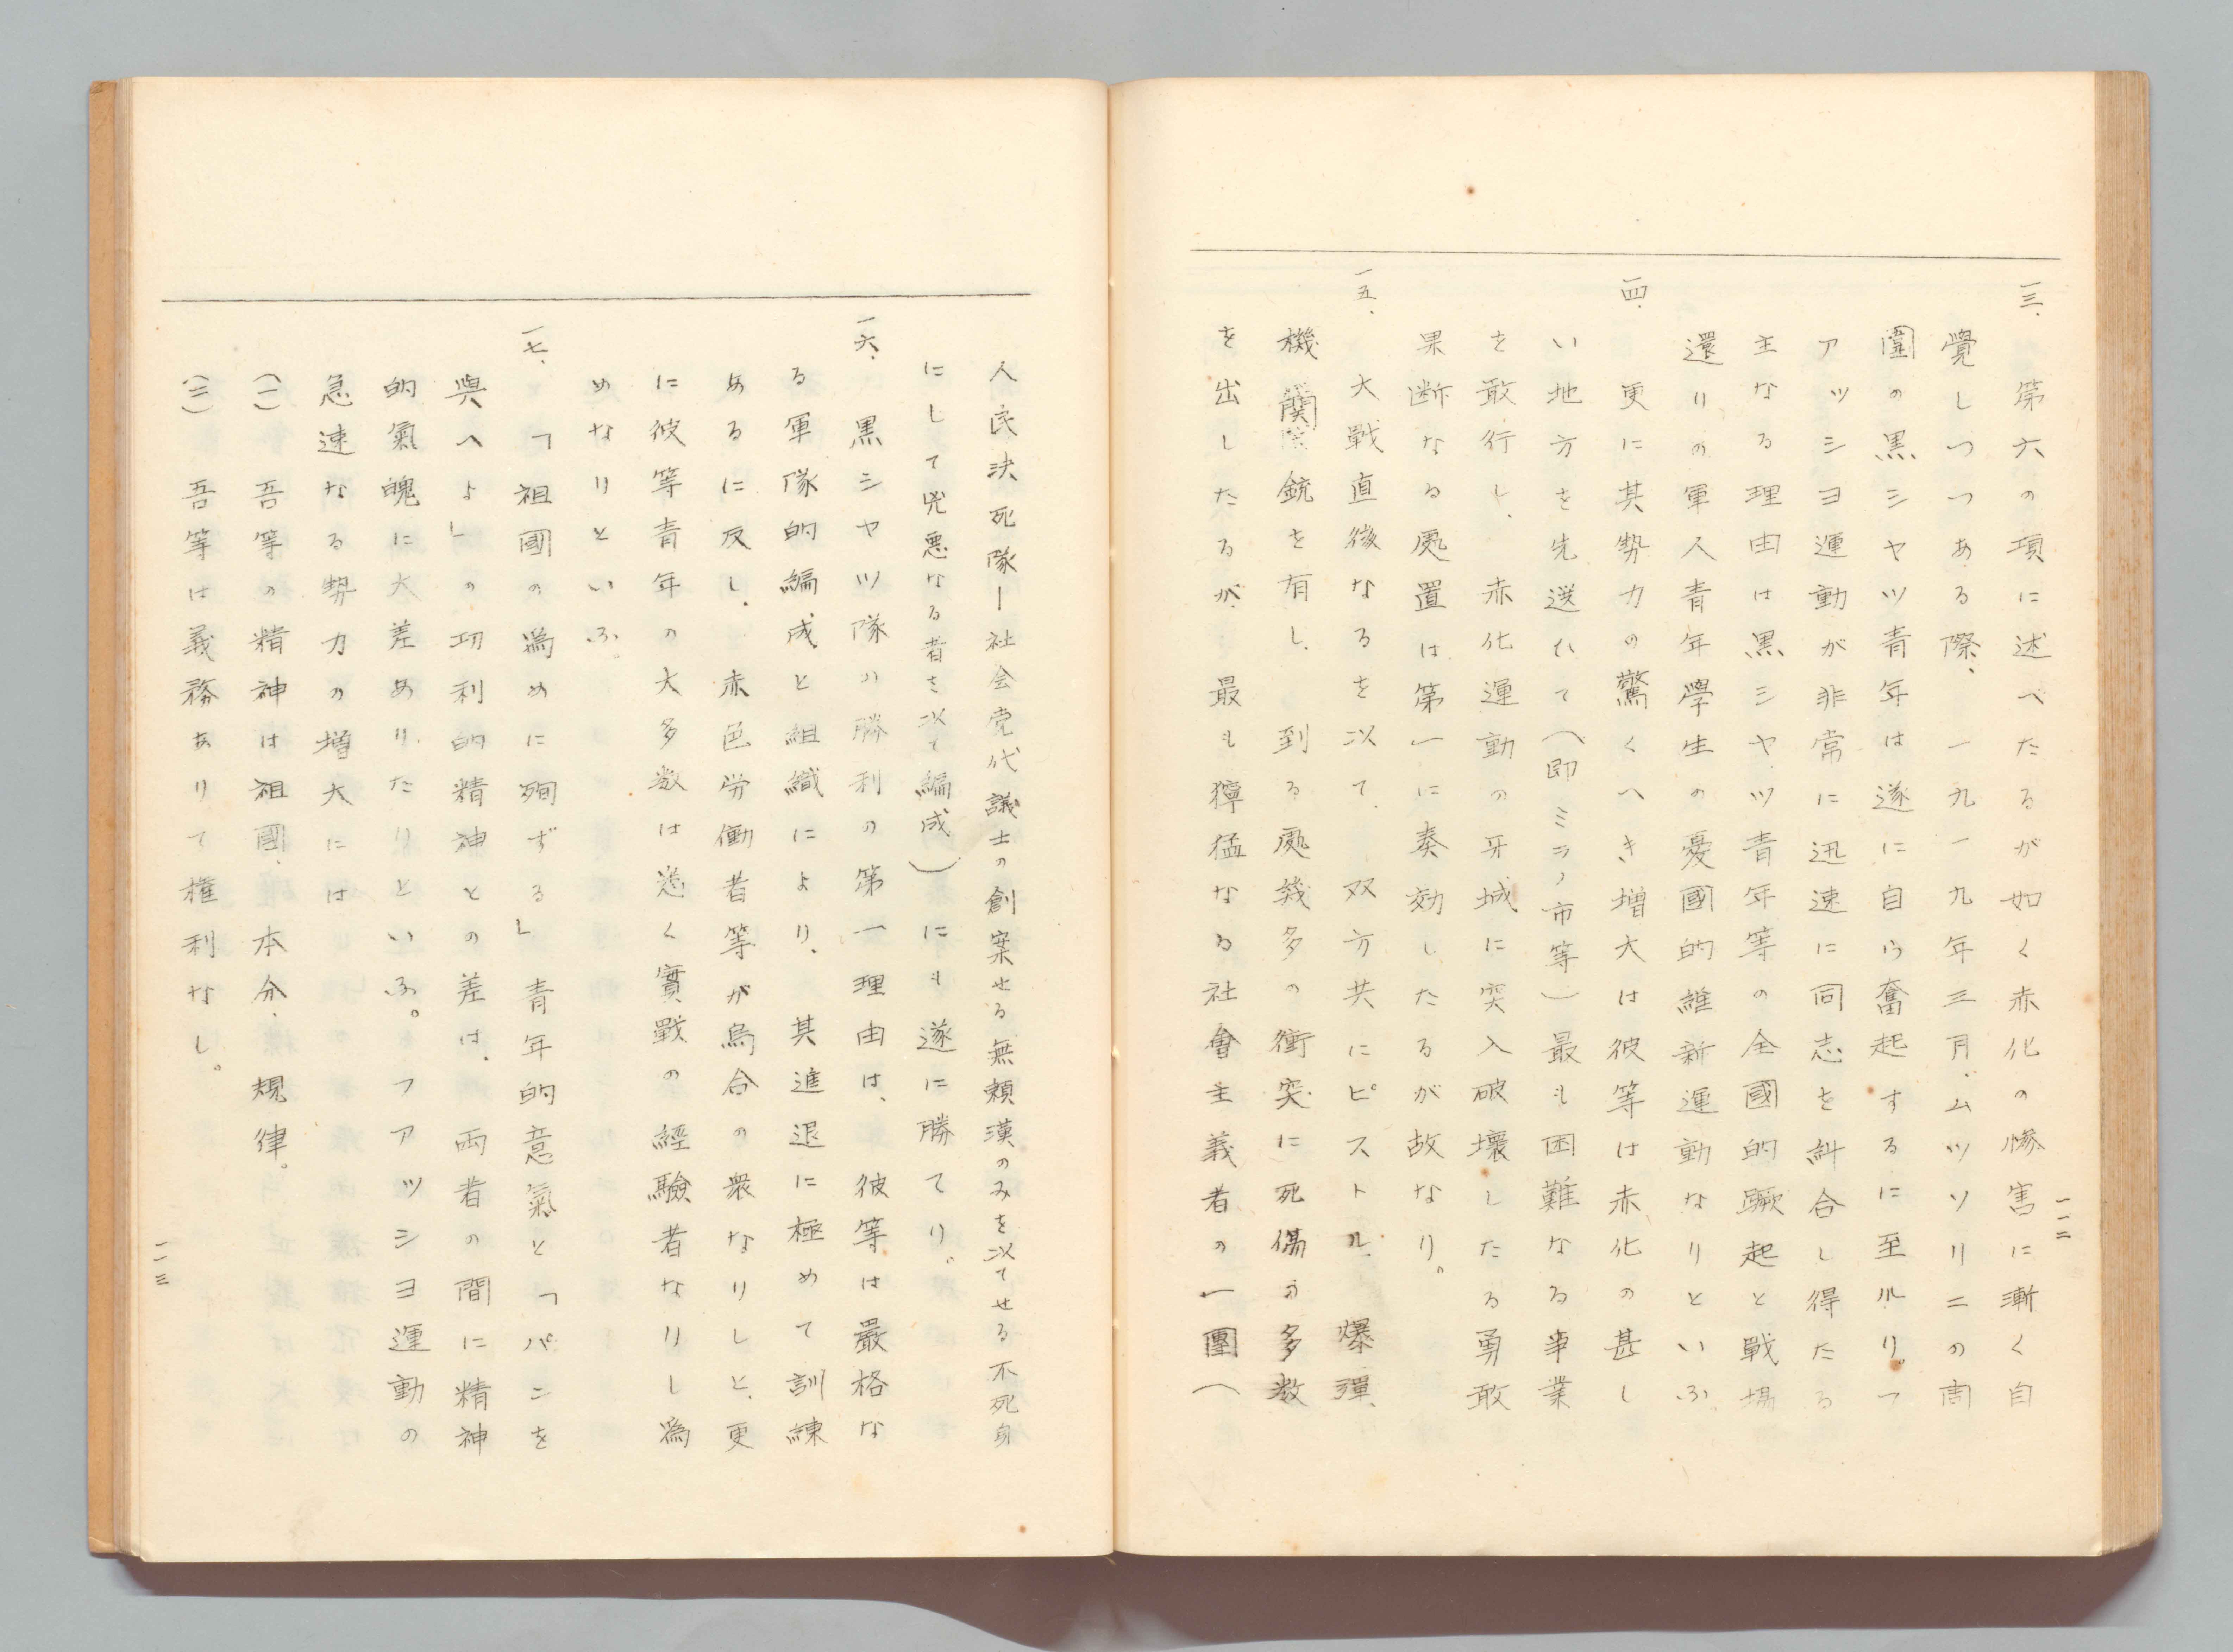 一一二
一三、第六の項に述べたるが如く赤化の惨害に漸く自
覺しつつある際、一九一九年三月、ムツソリニの周
圍の黒シヤツ青年は遂に自ら奮起するに至ルり。フ
アツシヨ運動が非常に迅速に同志を糾合し得たる
主なる理由は黒シヤツ青年等の全國的蹶起と戰場
還りの軍人青年學生の憂國的維新運動なりといふ。
一四、更に其勢力の驚くへき増大は彼等は赤化の甚し
い地方を先選ひて（即ミラノ市等）最も困難なる事業
を敢行し、赤化運動の牙城に突入破壞したる勇敢
果断なる處置は第一に奏効したるが故なり。
一五、大戰直後なるを以て、双方共にピストル、爆彈、
機関銃を有し、到る處幾多の衝突に死傷の多数
を出したるが、最も獰猛なる社會主義者の一團（
人民決死隊ー社会党代議士の創案せる無頼漢のみを以てせる不死身
にして兇悪なる者を以て編成）にも遂に勝てり。
一六、黒シヤツ隊の勝利の第一理由は、彼等は嚴格な
る軍隊的編成と組織により、其進退に極めて訓練
あるに反し、赤色労働者等が烏合の衆なりしと、更
に彼等青年の大多数は悉く實戰の經驗者なりし為
めなりといふ。
一七、「祖國の為めに殉ずる」青年的意氣と「パンを
與へよ」の功利的精神との差は、両者の間に精神
的氣魄に大差ありたりといふ。フアツシヨ運動の
急速なる勢力の増大には
（一）吾等の精神は祖國、本分、規律。
（二）吾等は義務ありて権利なし。
一一三